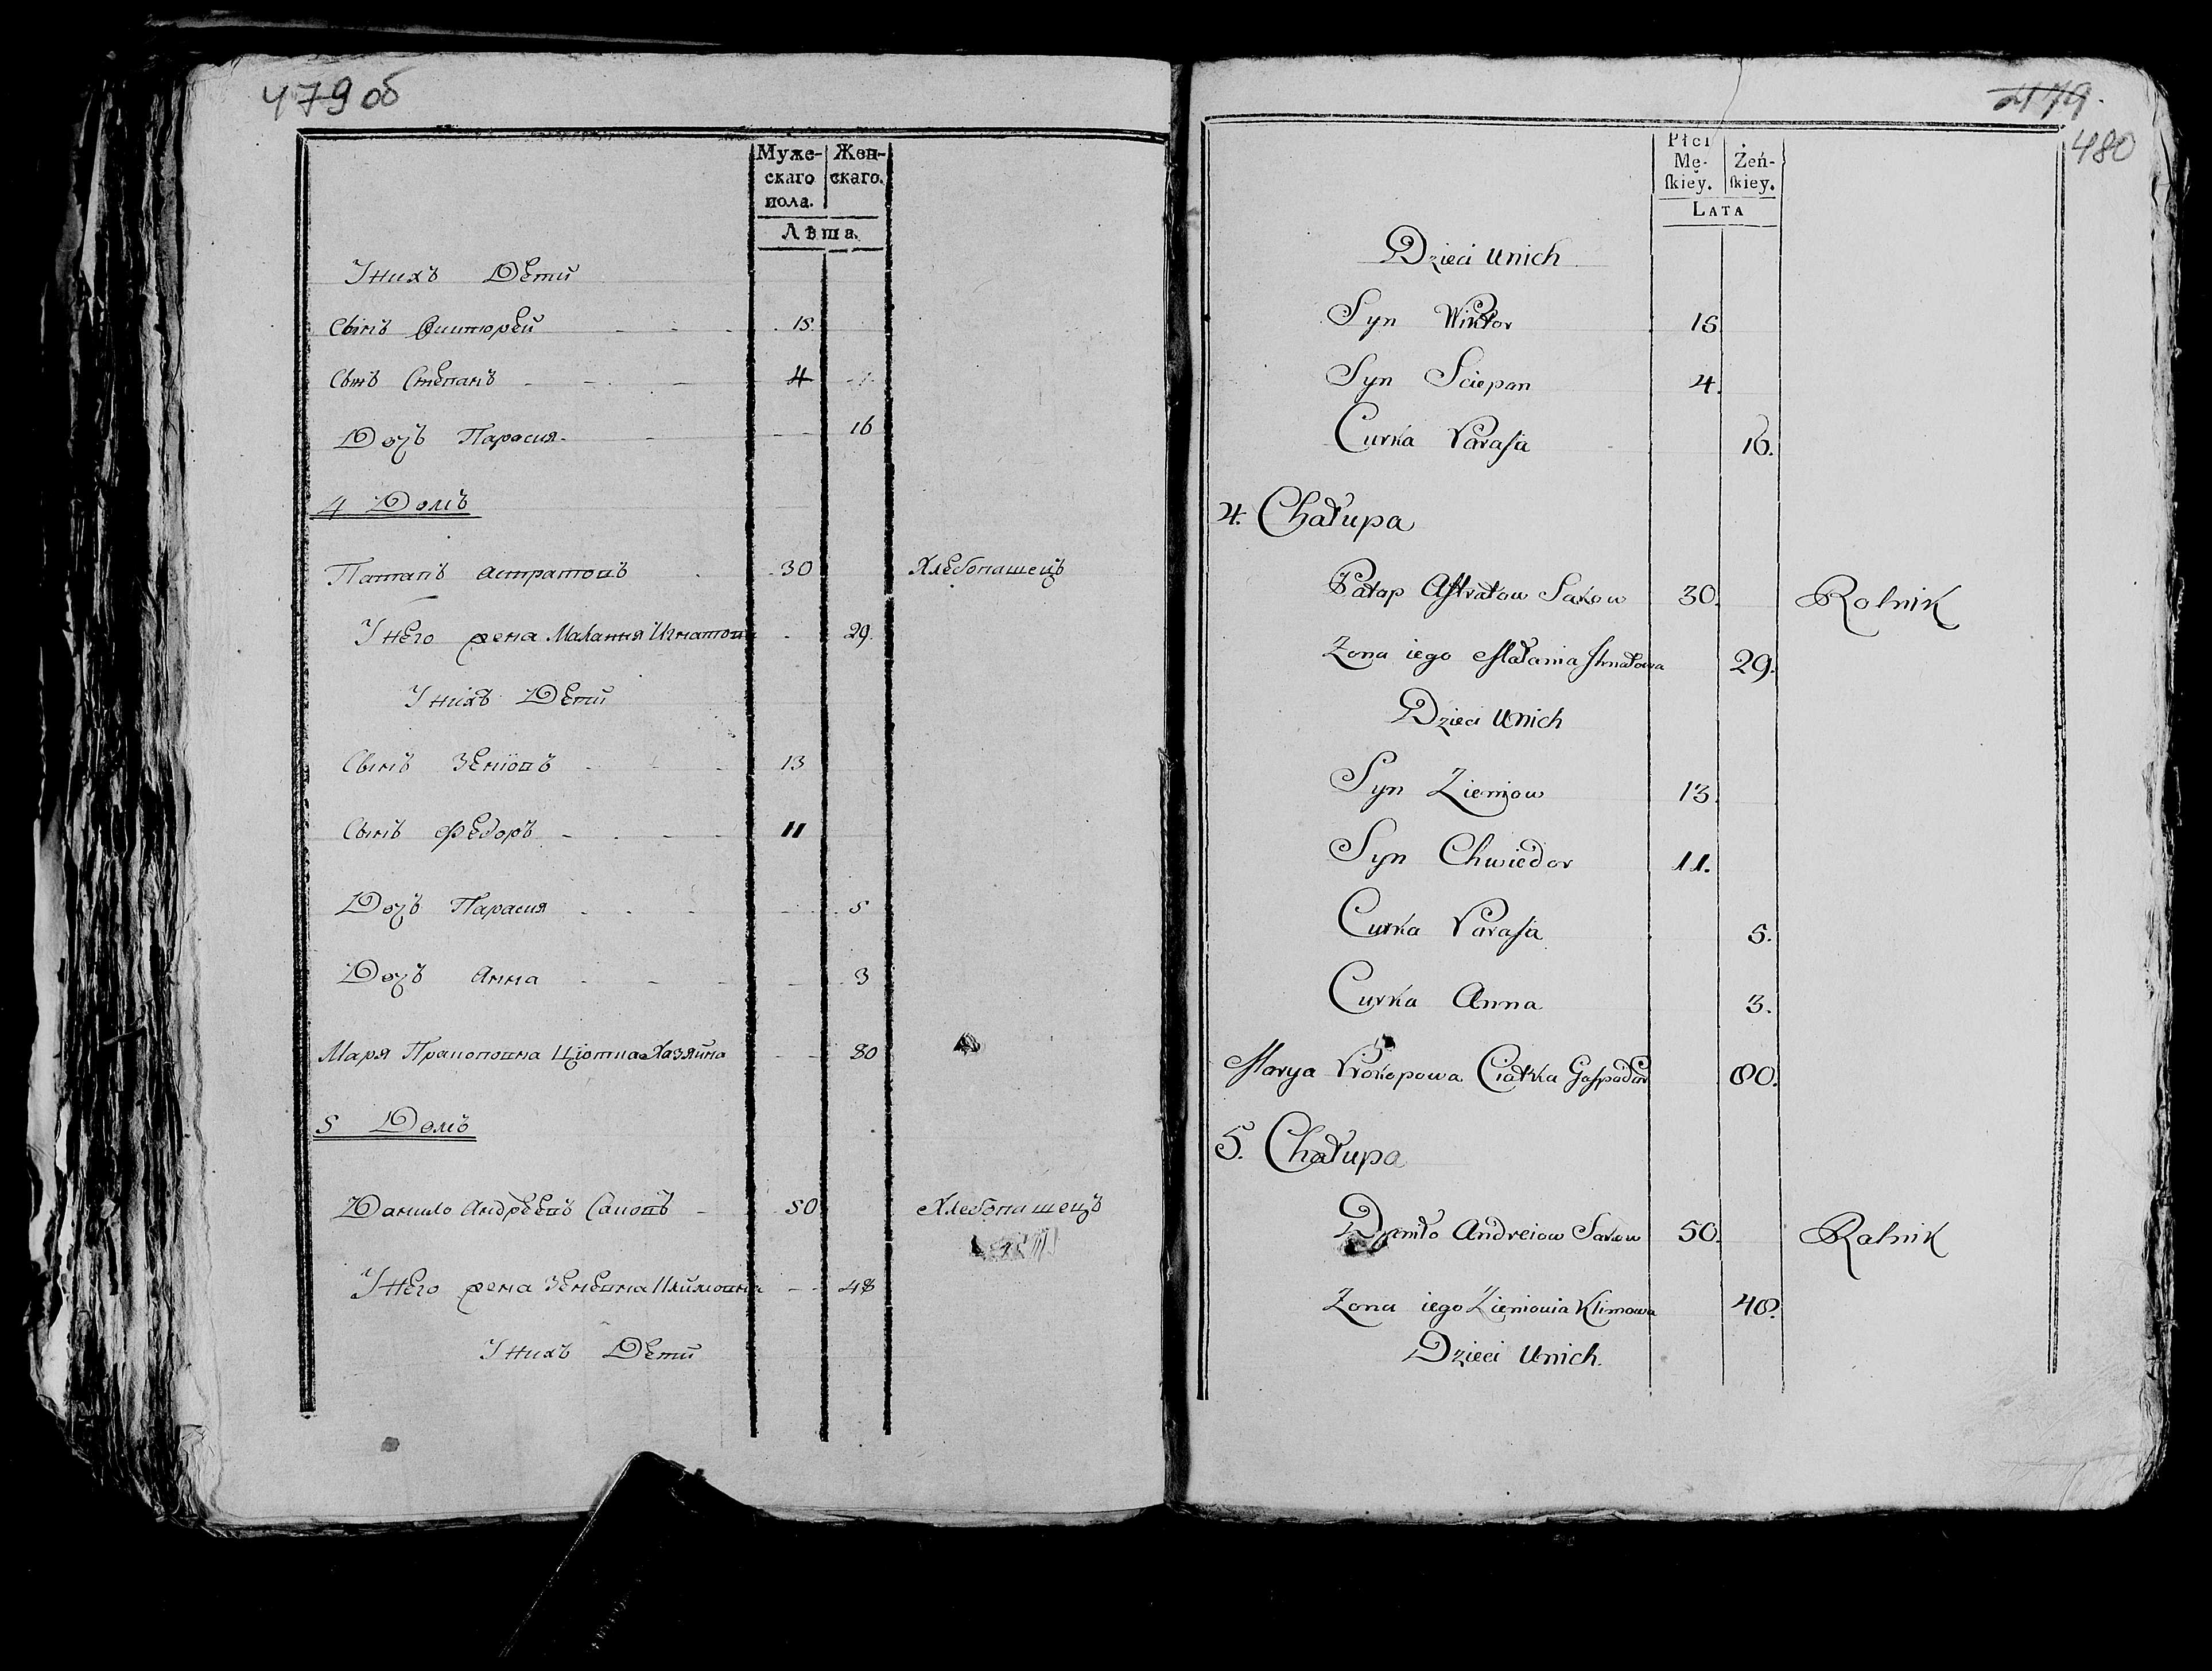 479 об
Муже- Жен-
скаго скаго.
пола.
Лѣта.
У нихъ Дети
Сынъ Виктюрей 15
Сынъ Степанъ 4
Дочъ Парасия 16
4 Домъ
Патапъ Астратовъ 30 Хлебопашецъ
У него жена Малания Игнатова 29.
У нихъ Дети
Сынъ Зеновъ 13
Сынъ Федоръ 11
Дочъ Парасия 5
Дочъ Анна 3
Маря Пракоповна Цютка Хазяйна 80
5 Домъ
Данило Андреевъ Саковъ 50 Хлебопашецъ
У него жена Зеневна Климовна 48
У нихъ Дети
479.
480
Płci
Mę- Żeń-
ſkiey. ſkiey.
LATA
Dzieci unich
Syn Wiktor 15
Syn Sciepan 4.
Curka Paraſia 16.
4. Chałupa
Patap Aſtratow Sakow 30. Rolnik
Zona iego Małania Ihnatowa 29.
Dzieci unich
Syn Zieniow 13.
Syn Chwiedor 11.
Curka Paraſia 5.
Curka Anna 3.
Marya Prokopowa Ciotka Goſpodar 80.
5. Chałupa
Daniło Andreiow Sakow 50. Rolnik
Zona iego Zieniowia Klimowa 48.
Dzieci unich.